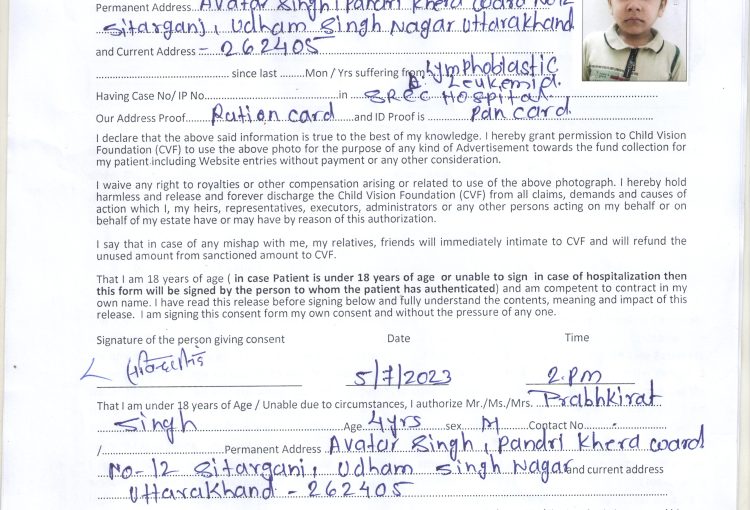 Permanent Address.. Avatar Singh, Pandri Kherd ward No 12
Sitarganj, Udham Singh Nagar Uttarakhand
and Current Address - 262405
since last ........Mon / Yrs suffering from Lymphoblastic
Leukemia.
Having Case No/ IP No. in SRCC Hospital.
Our Address Proof Ration card and ID Proof is Pan card.
I declare that the above said information is true to the best of my knowledge. I hereby grant permission to Child Vision
Foundation (CVF) to use the above photo for the purpose of any kind of Advertisement towards the fund collection for
my patient including Website entries without payment or any other consideration.
I waive any right to royalties or other compensation arising or related to use of the above photograph. I hereby hold
harmless and release and forever discharge the Child Vision Foundation (CVF) from all claims, demands and causes of
action which I, my heirs, representatives, executors, administrators or any other persons acting on my behalf or on
behalf of my estate have or may have by reason of this authorization.
I say that in case of any mishap with me, my relatives, friends will immediately intimate to CVF and will refund the
unused amount from sanctioned amount to CVF.
That I am 18 years of age ( in case Patient is under 18 years of age or unable to sign in case of hospitalization then
this form will be signed by the person to whom the patient has authenticated) and am competent to contract in my
own name. I have read this release before signing below and fully understand the contents, meaning and impact of this
release. I am signing this consent form my own consent and without the pressure of any one.
Signature of the person giving consent Date Time
5/7/2023 2.PM
That I am under 18 years of Age / Unable due to circumstances, I authorize Mr./Ms./Mrs. Prabhkirat
Singh Age. 4yrs sex M Contact No.
/ Permanent Address Avatar Singh, Pandri Kherd ward
No-12 Sitarganj, Udham Singh Nagar and current address
Uttarakhand - 262405